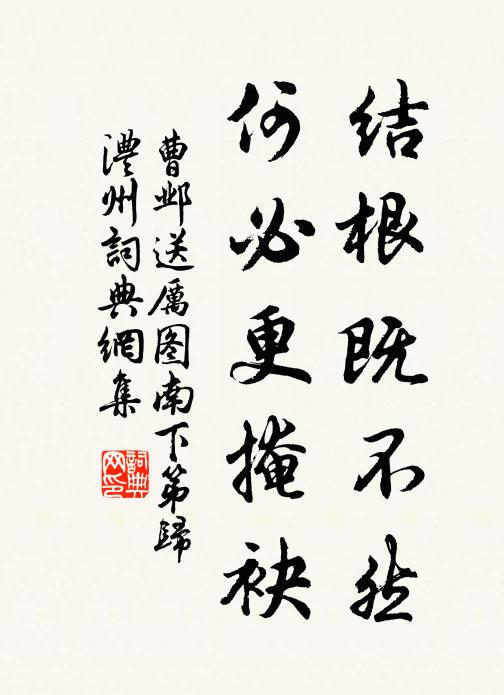 结根既不然
何必更掩袂
曹邺送厲图南下第歸
澧州詞典網集
詞典
网印